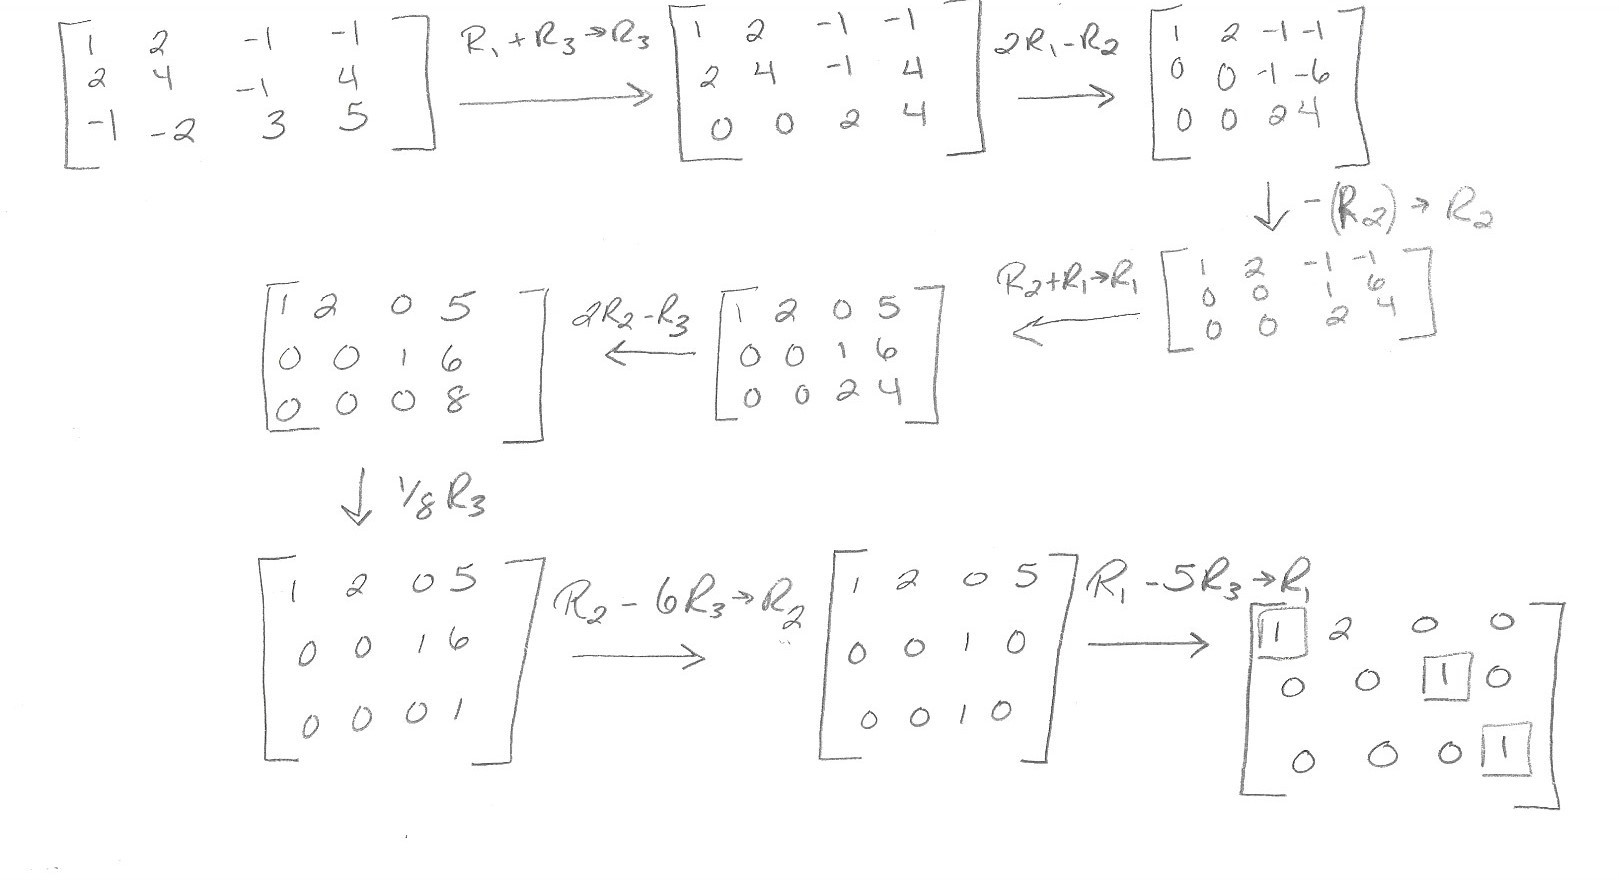 1 2 -1 -1
2 4 -1 4
-1 -2 3 5
R₁ + R₃ → R₃
1 2 -1 -1
2 4 -1 4
0 0 2 4
2R₁ - R₂
1 2 -1 -1
0 0 -1 -6
0 0 2 4
-(R₂) → R₂
1 2 -1 -1
0 0 1 6
0 0 2 4
R₂ + R₁ → R₁
1 2 0 5
0 0 1 6
0 0 2 4
2R₂ - R₃
1 2 0 5
0 0 1 6
0 0 0 8
1/8 R₃
1 2 0 5
0 0 1 6
0 0 0 1
R₂ - 6R₃ → R₂
1 2 0 5
0 0 1 0
0 0 1 0
R₁ - 5R₃ → R₁
1 2 0 0
0 0 1 0
0 0 0 1